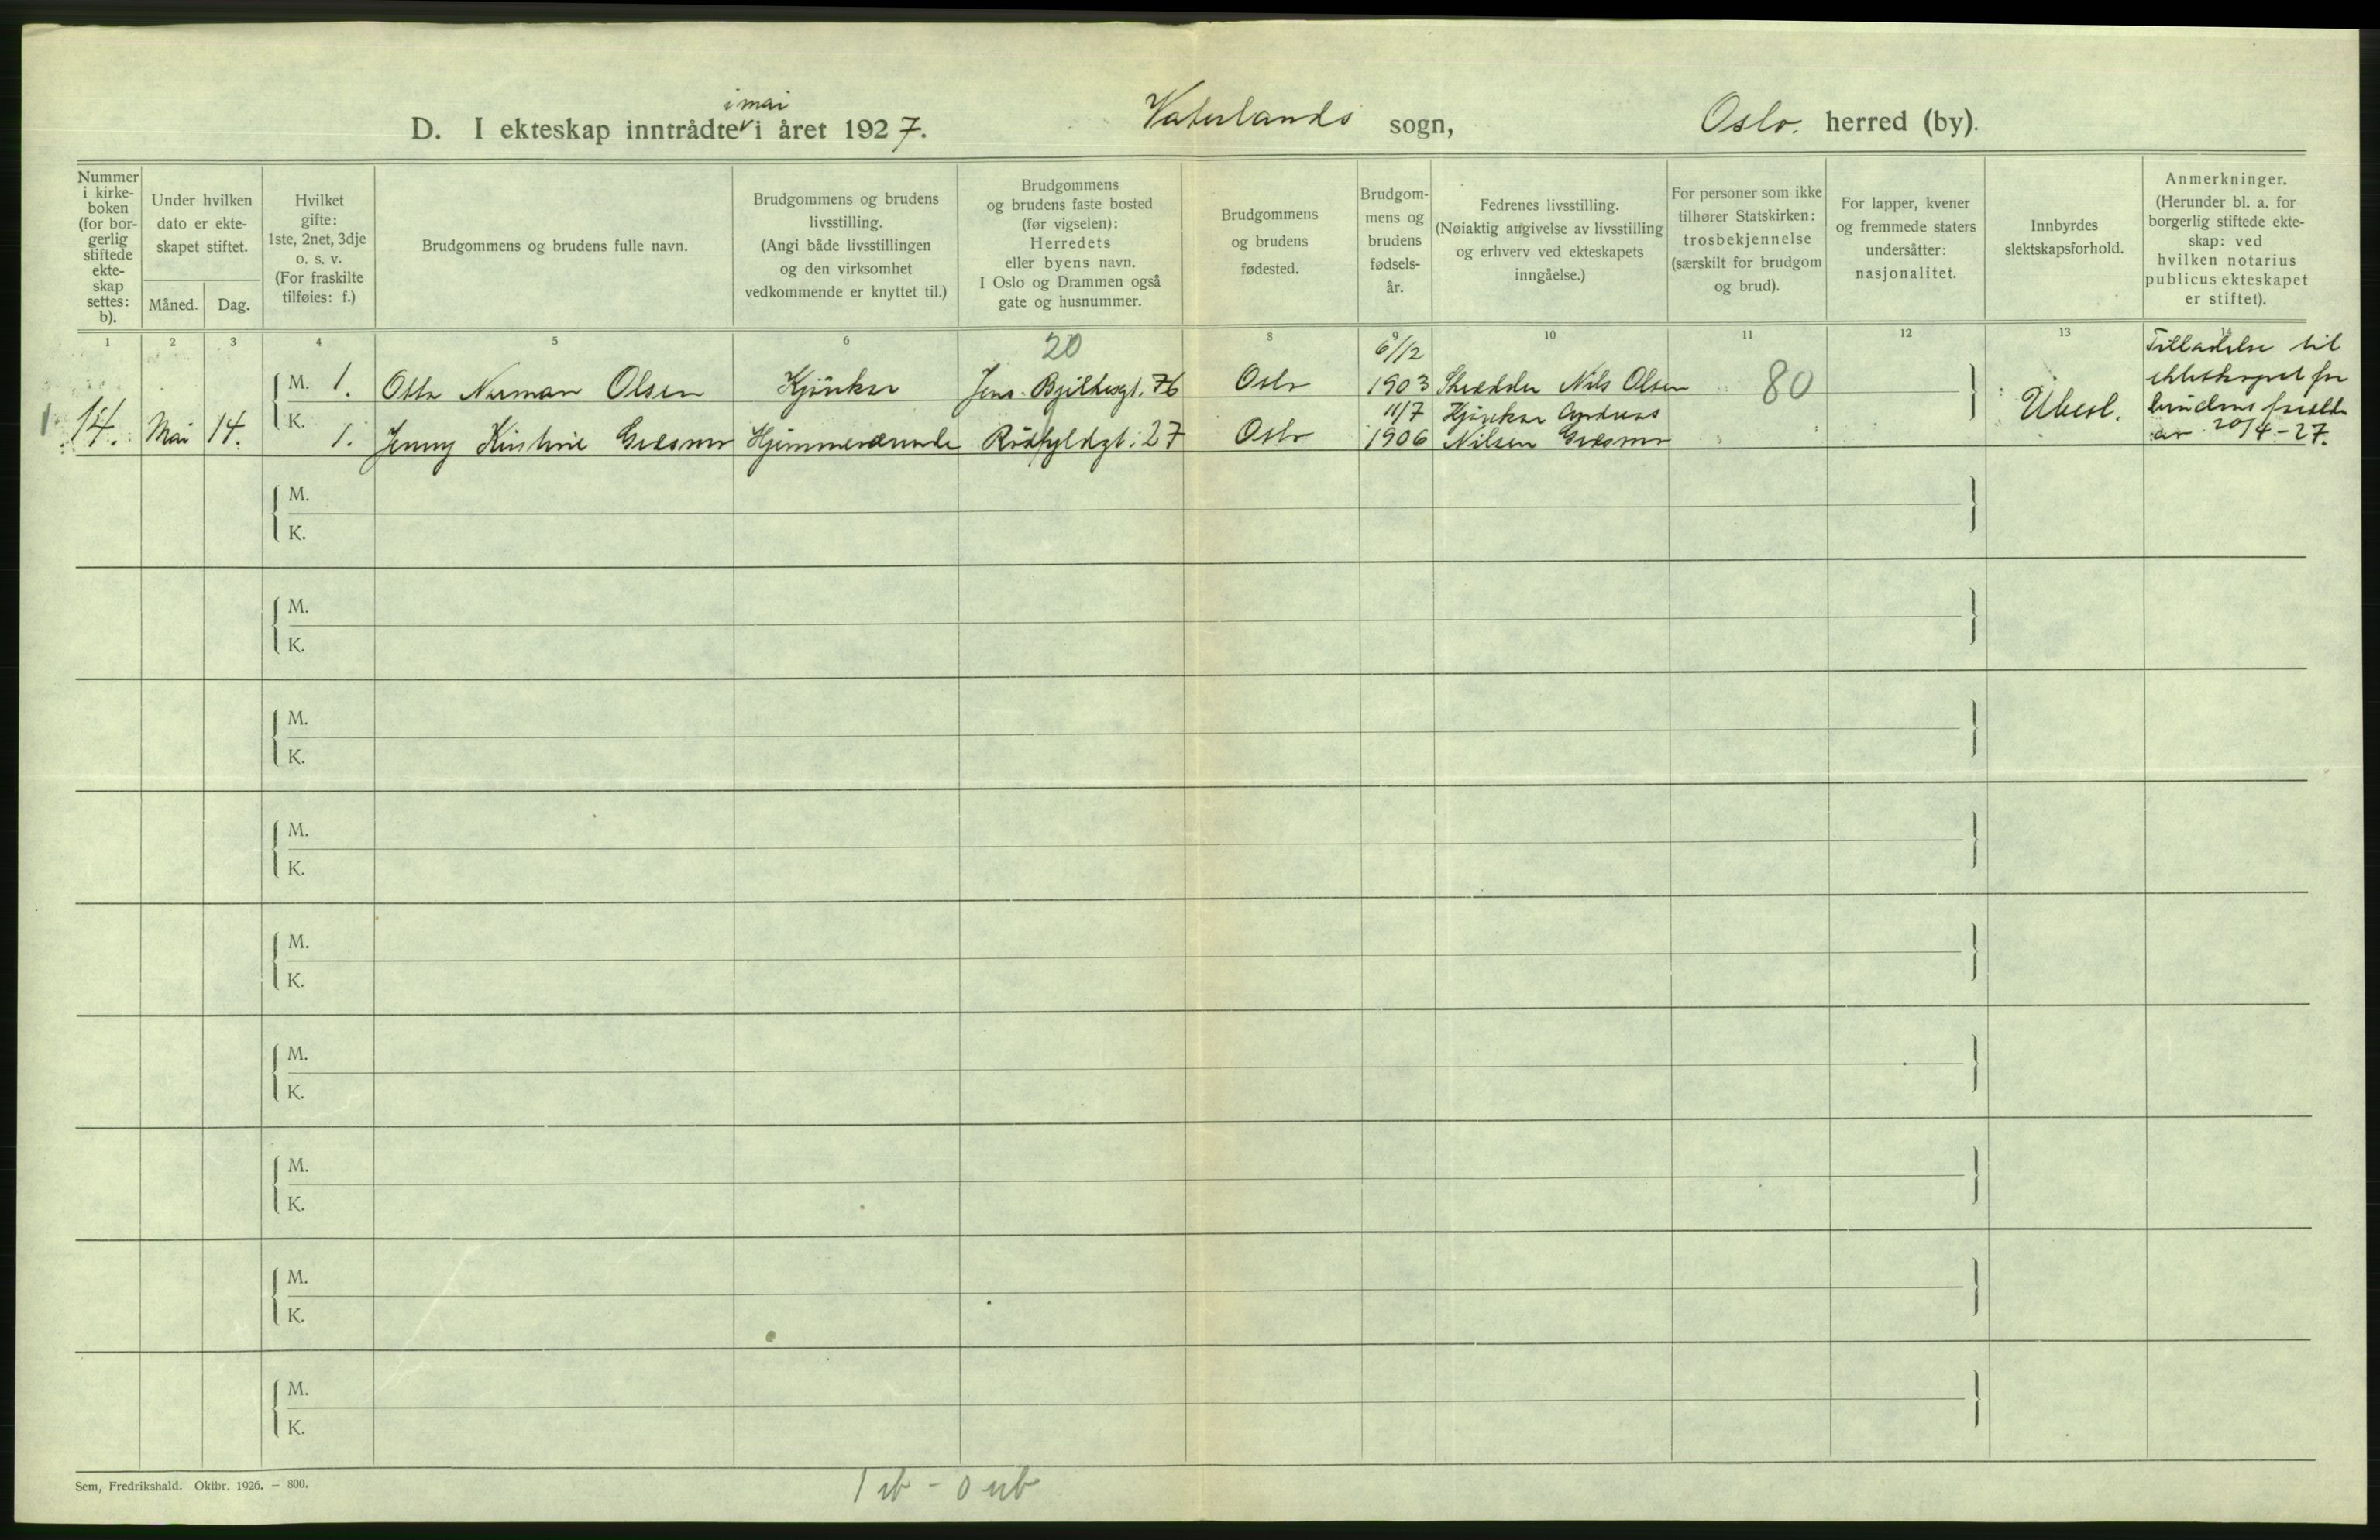 i mai
D. I ekteskap inntrådte i året 1927. Vaterlands sogn, Oslo. herred (by).
Nummer
i kirke-
boken
(for bor-
gerlig
stiftede
ekte-
skap
settes:
b).
Under hvilken
dato er ekte-
skapet stiftet.
Måned. Dag.
Hvilket
gifte:
1ste, 2net, 3dje
o. s. v.
(For fraskilte
tilføies: f.)
Brudgommens og brudens fulle navn.
Brudgommens og brudens
livsstilling.
(Angi både livsstillingen
og den virksomhet
vedkommende er knyttet til.)
Brudgommens
og brudens faste bosted
(før vigselen):
Herredets
eller byens navn.
I Oslo og Drammen også
gate og husnummer.
Brudgommens
og brudens
fødested.
Brudgom-
mens og
brudens
fødsels-
år.
Fedrenes livsstilling.
(Nøiaktig angivelse av livsstilling
og erhverv ved ekteskapets
inngåelse.)
For personer som ikke
tilhører Statskirken:
trosbekjennelse
(særskilt for brudgom
og brud).
For lapper, kvener
og fremmede staters
undersåtter:
nasjonalitet.
Innbyrdes
slektskapsforhold.
Anmerkninger.
(Herunder bl. a. for
borgerlig stiftede ekte-
skap: ved
hvilken notarius
publicus ekteskapet
er stiftet).
1 2 3 4 5 6 8 9 10 11 12 13 14
20
6/12
M. 1. Otto Norman Olsen Kjörekar Jens Bjelkesgt. 76 Oslo 1903 Skredder Nils Olsen 80
11/7 Kjörekar Andreas
1 14. Mai 14. K. 1. Jenny Kristine Græsmo Hjemmeværende Rödfyldgt. 27 Oslo 1906 Nilsen Græsmo Ubesl.
Tilladelse til
ekteskapet fra
brudens forældre
av 20/4-27.
M.
K.
M.
K.
M.
K.
M.
K.
M.
K.
M.
K.
M.
K.
M.
K.
M.
K.
Sem, Fredrikshald. Oktbr. 1926. – 800.
1 ub - 0 ub